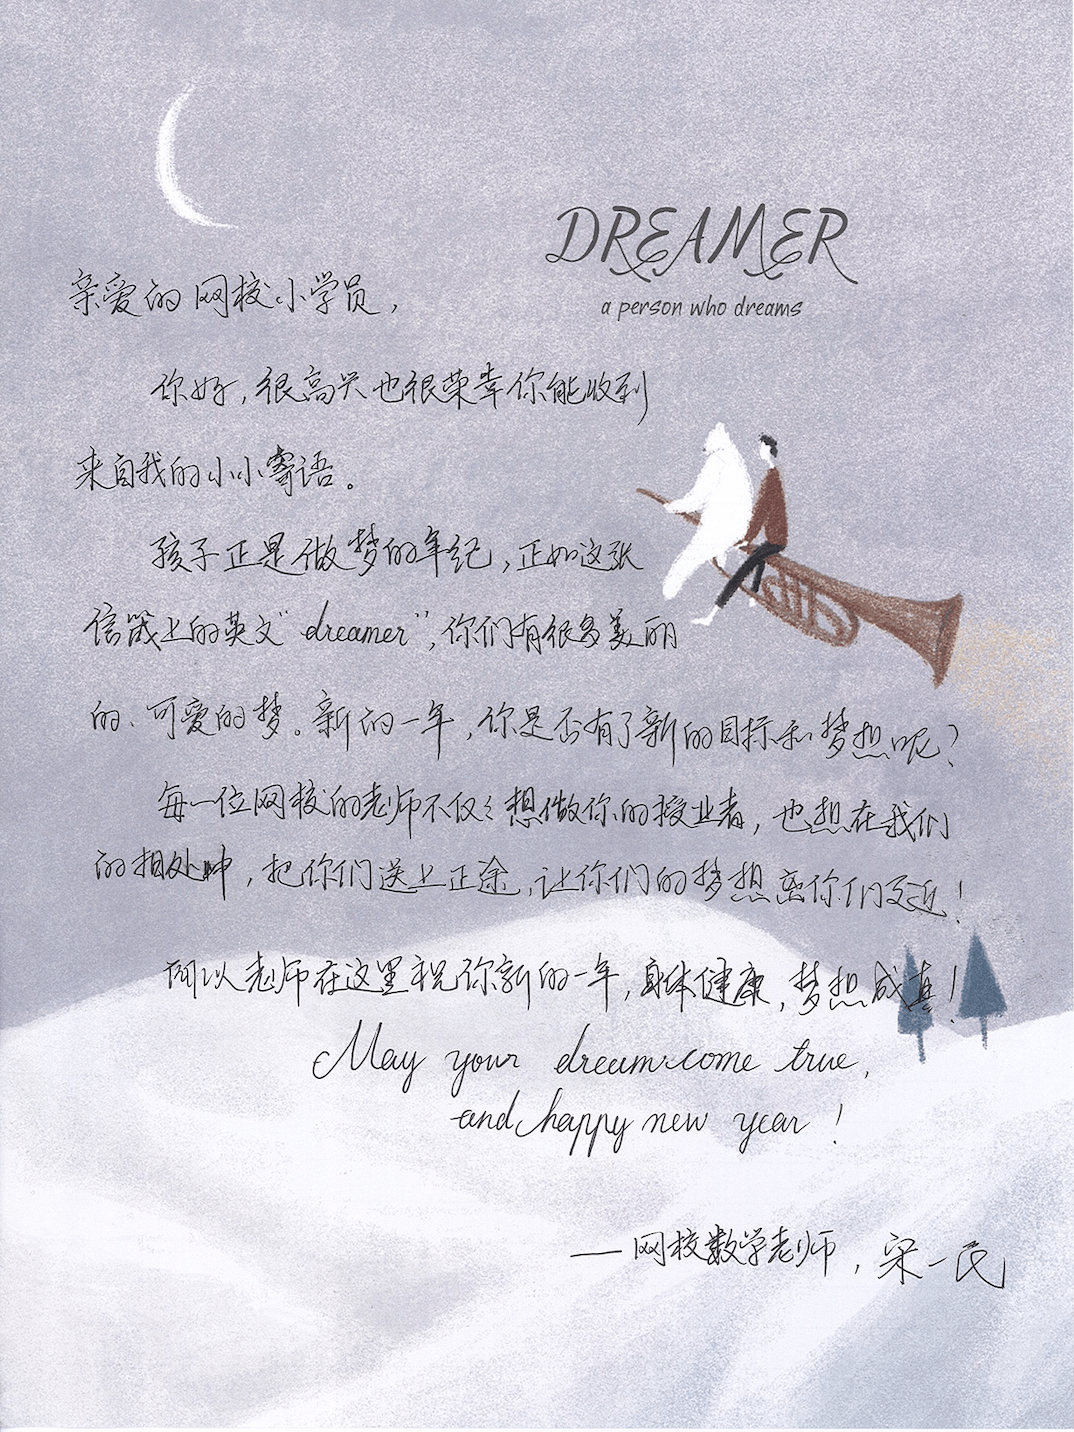 DREAMER
a person who dreams
亲爱的网校小学员，
你好，很高兴也很荣幸你能收到
来自我的小小寄语。
孩子正是做梦的年纪，正如这张
信笺上的英文“dreamer”，你们有很多美丽
的、可爱的梦。新的一年，你是否有了新的目标和梦想呢？
每一位网校的老师不仅仅想做你的授业者，也想在我们
的相处中，把你们送上正途，让你们的梦想离你们更近！
所以老师在这里祝你新的一年，身体健康，梦想成真！
May your dream come true,
and happy new year！
——网校数学老师，梁一民